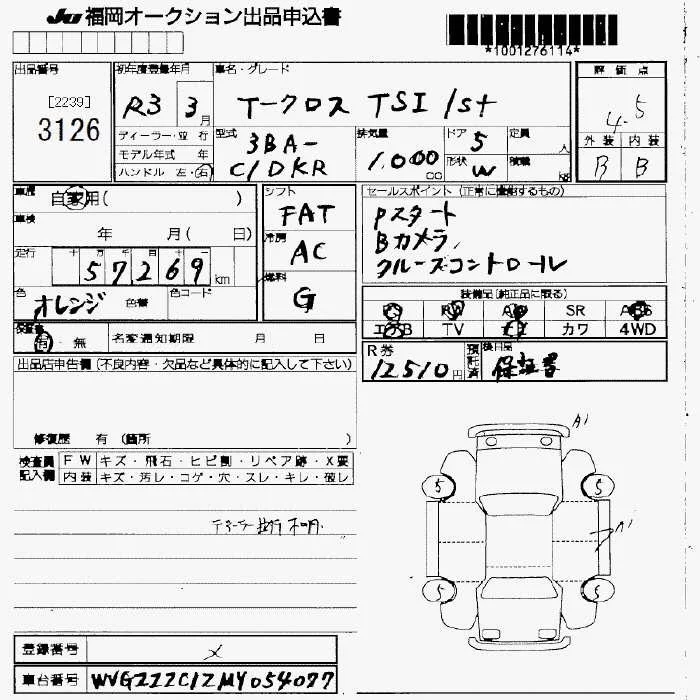 JU 福岡オークション出品申込書
*1001276114*
出品番号
[2239]
3126
初年度登録年月
R3 3月
ディーラー・並行
モデル年式 年
ハンドル 左・右
車名・グレード
T-クロス TSI 1st
型式
3BA-
C1DKR
排気量
1,000 cc
ドア 5
形状 W
定員 人
積載 kg
評価点
4.5
外装 内装
B B
車歴 自家用( )
車検 年 月( 日)
走行 十 万 千 百 十
57269 km
色 オレンジ 色替 色コード
シフト
FAT
冷房
AC
燃料
G
セールスポイント (正常に機能するもの)
Pスタート
Bカメラ
クルーズコントロール
装備品(純正品に限る)
PS PW AW SR ABS
エアB TV ナビ カワ 4WD
有・無 名変通知期限 月 日
R券 12510円 預託済
後日品 保証書
出品店申告欄 (不良内容・欠品など具体的に記入して下さい)
修復歴 有 (箇所 )
検査員記入欄
FW キズ・飛石・ヒビ割・リペア跡・X要
内装 キズ・汚レ・コゲ・穴・スレ・キレ・破レ
ディーラー 並行 不明
A1
5 5
A1
5 5
登録番号 ×
車台番号 WVGZZZC1ZMY054077